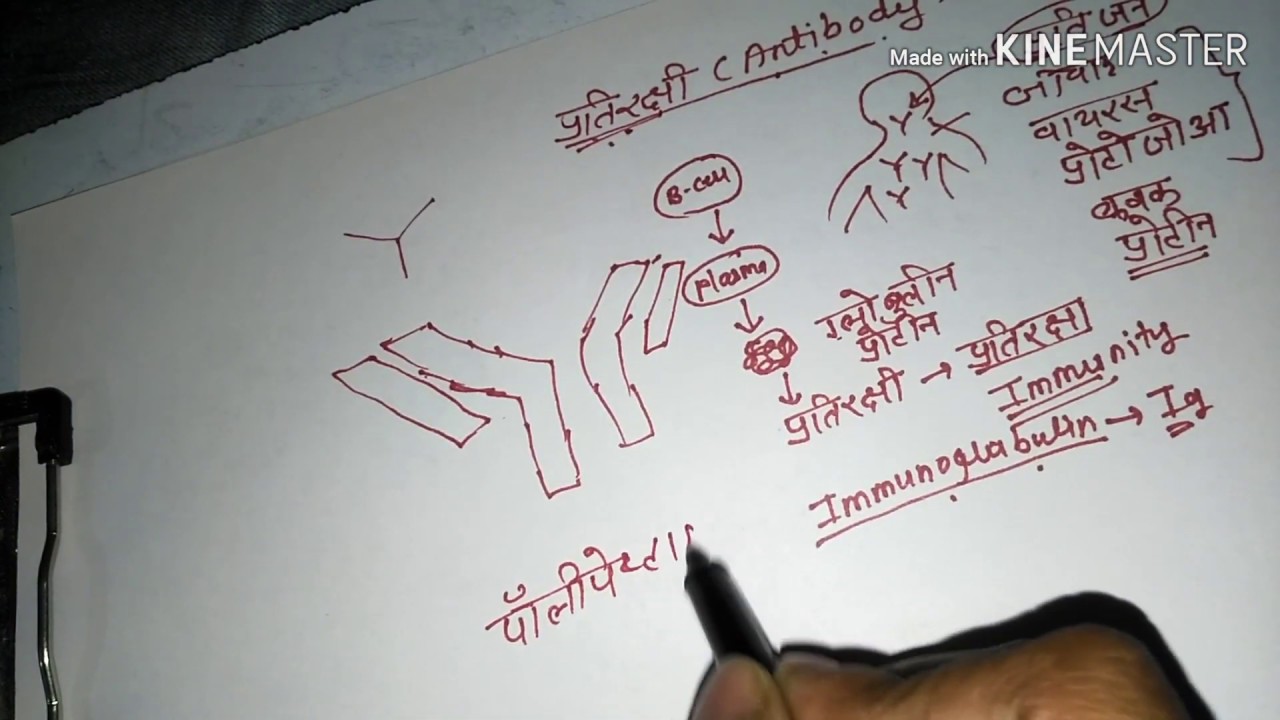 प्रतिरक्षी ( Antibody
Made with KINEMASTER
वायरस
प्रोटोजोआ
प्रोटीन
B-cell
Plasma
ग्लोब्लीन
प्रोटीन
प्रतिरक्षी → प्रतिरक्षा
Immunity
Immunoglabulin → Ig